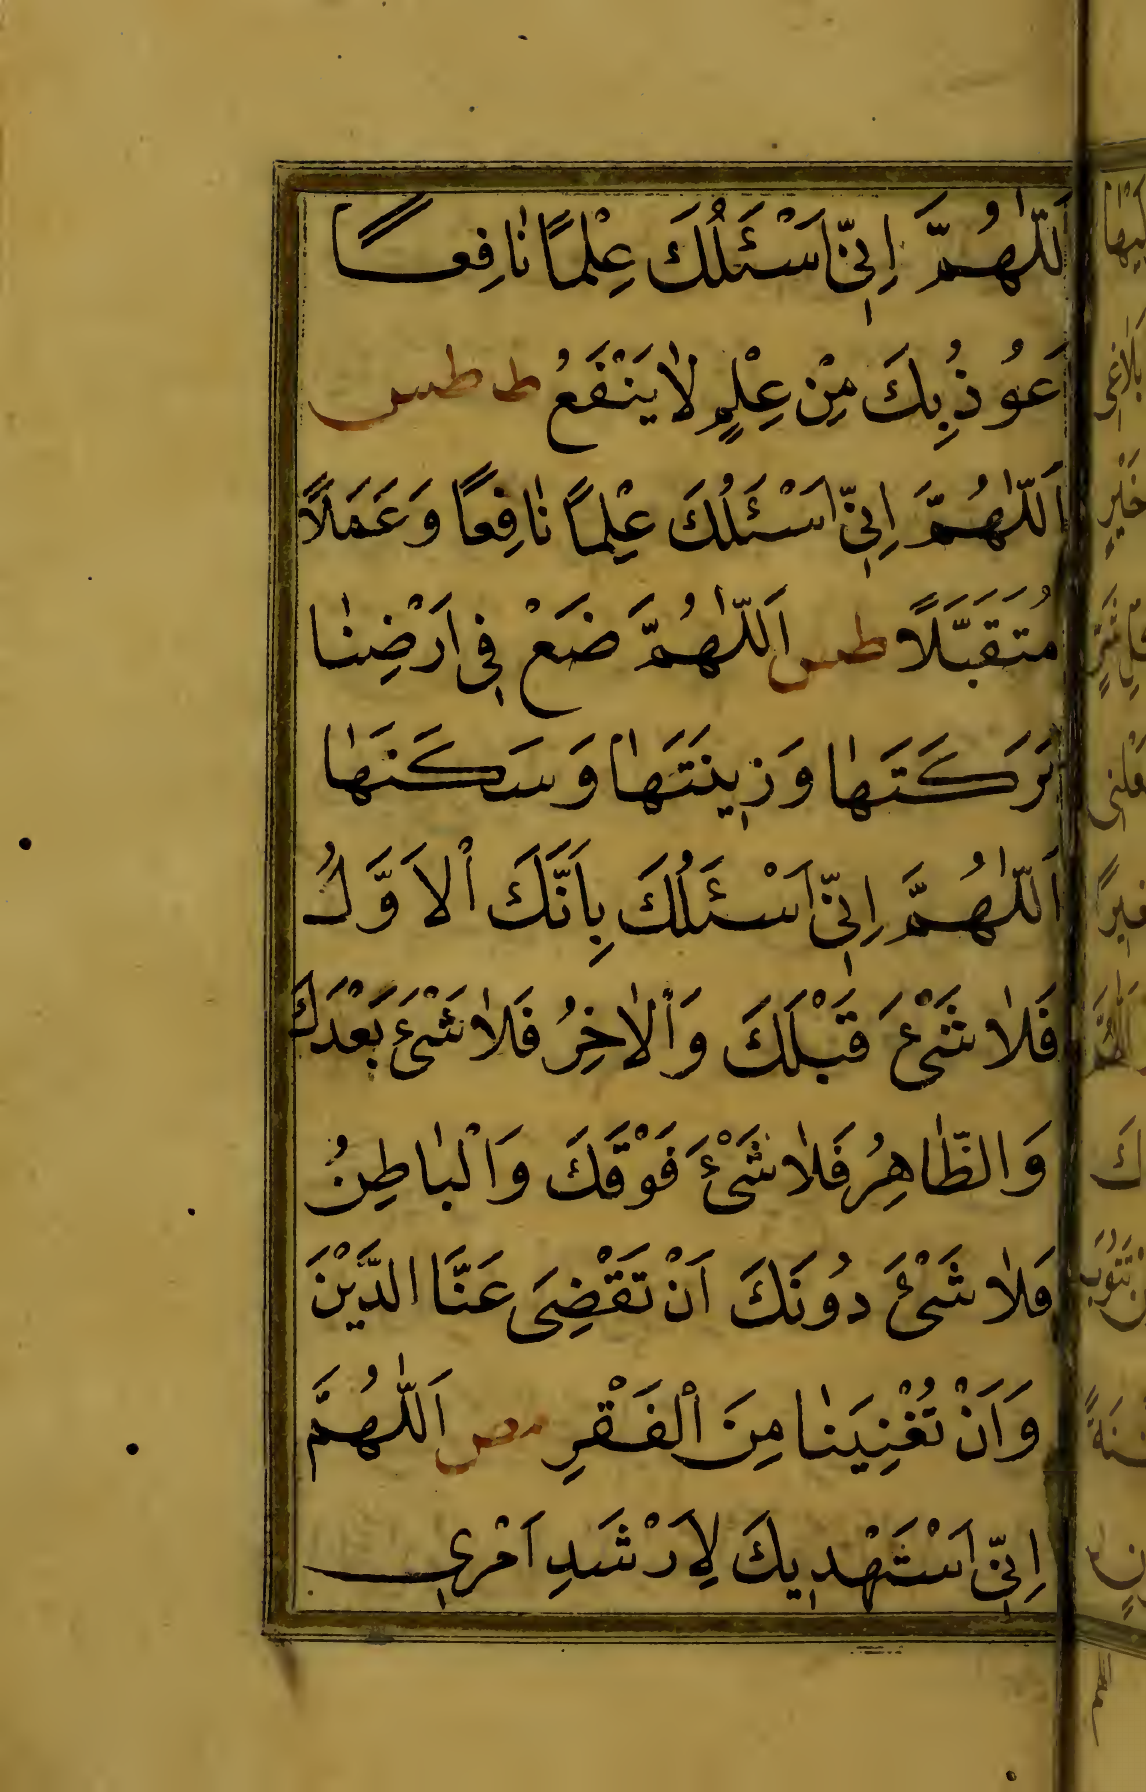 اَللّٰهُمَّ اِنّٖي اَسْئَلُكَ عِلْمًا نٰافِعًا
اَعُوُذُ بِكَ مِنْ عِلْمٍ لاٰ يَنْفَعُ ط طس
اَللّٰهُمَّ اِنّٖي اَسْئَلُكَ عِلْمًا نٰافِعًا وَعَمَلًا
مُتَقَبَّلًا طس اَللّٰهُمَّ ضَعْ فٖي اَرْضِنٰا
بَرَكَتَهٰا وَزٖينَتَهٰا وَسَكَنَهٰا
اَللّٰهُمَّ اِنّٖي اَسْئَلُكَ بِاَنَّكَ اْلاَوَّلُ
فَلاٰ شَىْءَ قَبْلَكَ وَاْلاٰخِرُ فَلاٰ شَىْءَ بَعْدَكَ
وَالظّٰاهِرُ فَلاٰ شَىْءَ فَوْقَكَ وَالْبٰاطِنُ
فَلاٰ شَىْءَ دُونَكَ اَنْ تَقْضِىَ عَنَّا الدَّيْنَ
وَاَنْ تُغْنِيَنٰا مِنَ اْلفَقْرِ مص اَللّٰهُمَّ
اِنّٖي اَسْتَهْدٖيكَ لِاَرْشَدِ اَمْرٖي